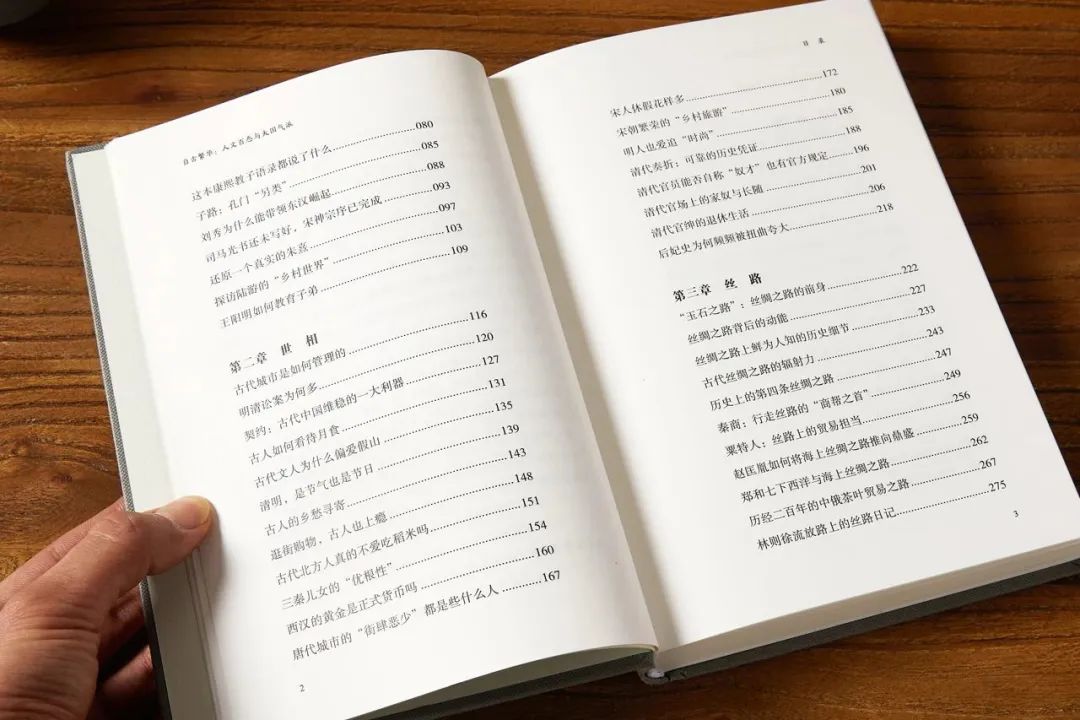 自古繁华：人文百态与大国气派
这本康熙教子语录都说了什么……080
子路：孔门“另类”……085
刘秀为什么能带领东汉崛起……088
司马光书还未写好，宋神宗序已完成……093
还原一个真实的朱熹……097
探访陆游的“乡村世界”……103
王阳明如何教育子弟……109
第二章 世 相
古代城市是如何管理的……116
明清讼案为何多……120
契约：古代中国维稳的一大利器……127
古人如何看待月食……131
古代文人为什么偏爱假山……135
清明，是节气也是节日……139
古人的乡愁寻寄……143
逛街购物，古人也上瘾……148
古代北方人真的不爱吃稻米吗……151
三秦儿女的“优根性”……154
西汉的黄金是正式货币吗……160
唐代城市的“街肆恶少”都是些什么人……167
2
目 录
宋人休假花样多……172
宋朝繁荣的“乡村旅游”……180
明人也爱追“时尚”……185
清代奏折：可靠的历史凭证……188
清代官员能否自称“奴才”也有官方规定……196
清代官场上的家奴与长随……201
清代官绅的退休生活……206
后妃史为何频频被扭曲夸大……218
第三章 丝 路
“玉石之路”：丝绸之路的前身……222
丝绸之路背后的动能……227
丝绸之路上鲜为人知的历史细节……233
古代丝绸之路的辐射力……243
历史上的第四条丝绸之路……247
秦商：行走丝路的“商帮之首”……249
粟特人：丝路上的贸易担当……256
赵匡胤如何将海上丝绸之路推向鼎盛……259
郑和七下西洋与海上丝绸之路……262
历经二百年的中俄茶叶贸易之路……267
林则徐流放路上的丝路日记……275
3